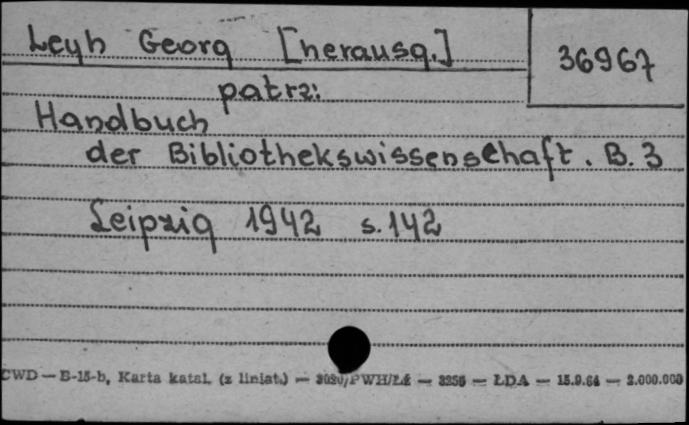 Leyh Georg [herausg.]
36967
patrz:
Handbuch
der Bibliothekswissenschaft. B. 3
Leipzig 1942 s. 142
CWD — B-15-b, Karta katal. (z liniat.) — PWH/Łź — 3256 — ŁDA — 15.9.64 — 2.000.000